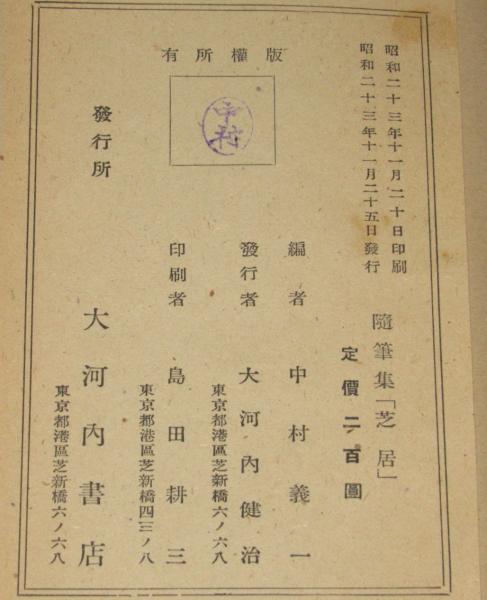 昭和二十三年十一月二十日印刷
昭和二十三年十一月二十五日發行
隨筆集「芝居」
定價二百圓
版權所有
中村
編者 中村義一
發行者 大河內健治
東京都港區芝新橋六ノ六八
印刷者 島田耕三
東京都港區芝新橋四三ノ八
發行所 大河內書店
東京都港區芝新橋六ノ六八